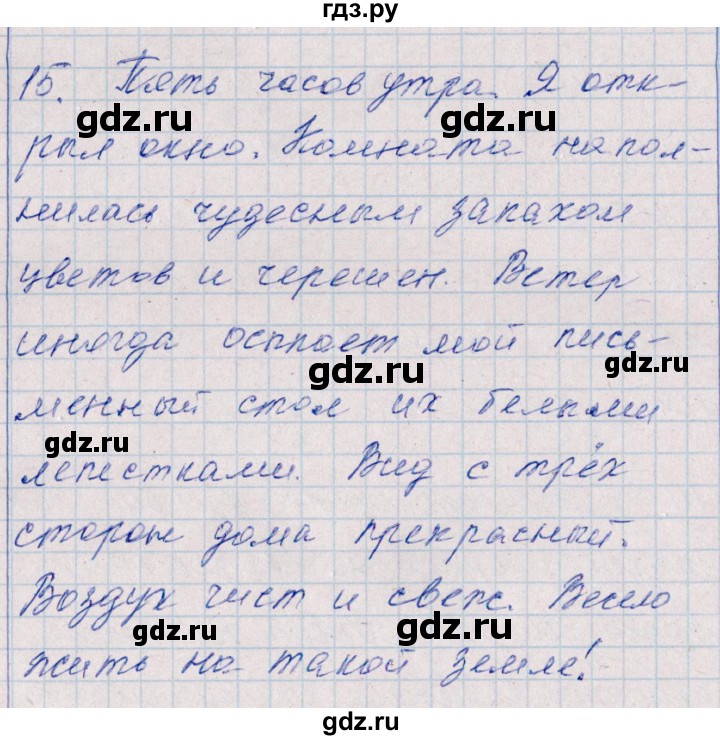 гдз.ру
15. Пять часов утра. Я отк-
gdz.ru gdz.ru
рыл окно. Комната напол-
нилась чудесным запахом
gdz.ru
цветов и черешен. Ветер
иногда осыпает мой пись-
gdz.ru
менный стол их белыми
gdz.ru
лепестками. Вид с трёх
сторон дома прекрасный.
gdz.ru
Воздух чист и свеж. Весело
gdz.ru gdz.ru
жить на такой земле!
gdz.ru